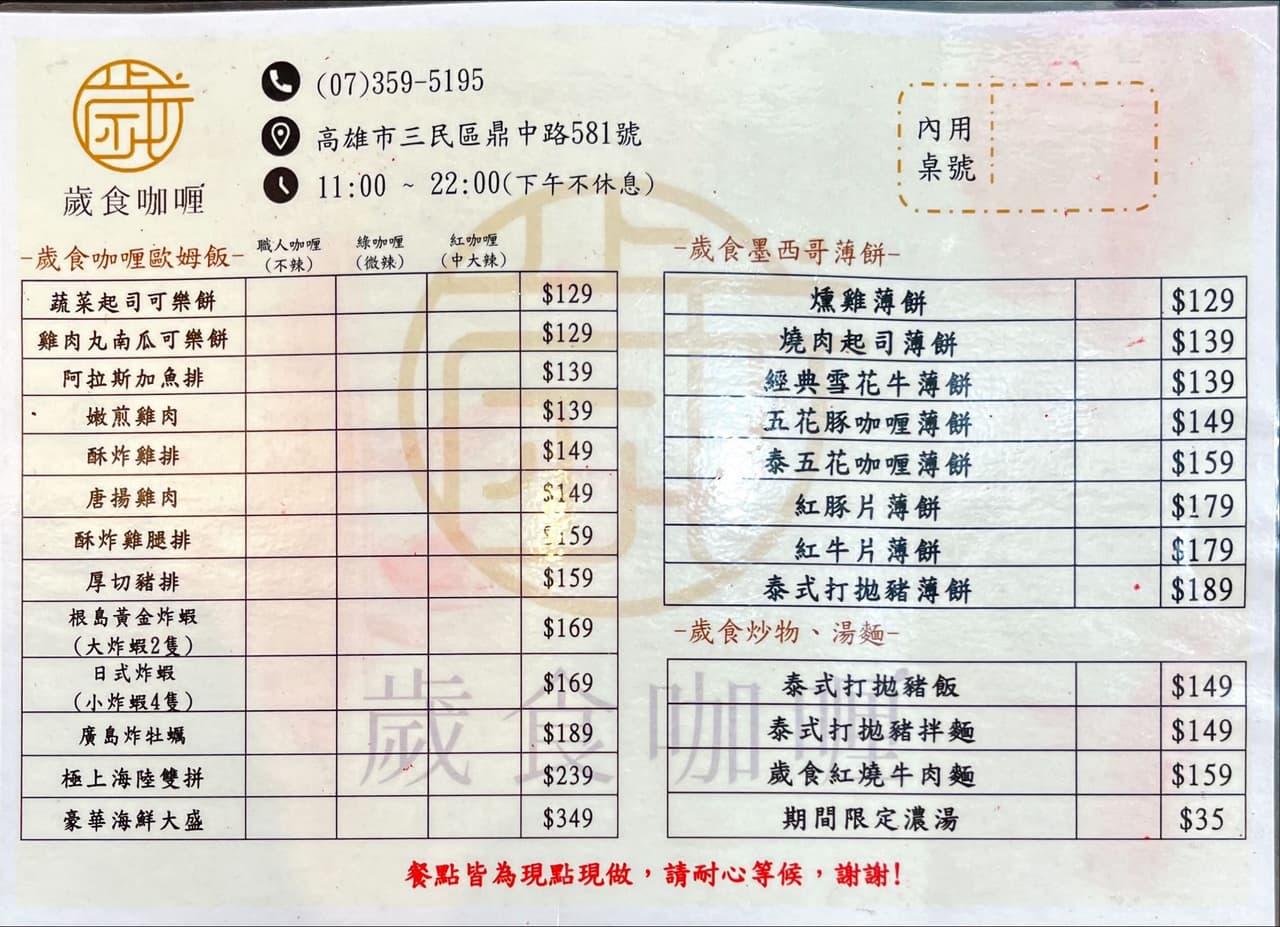 歲
歲食咖喱
(07)359-5195
高雄市三民區鼎中路581號
11:00 ~ 22:00(下午不休息)
內用
桌號
-歲食咖喱歐姆飯-
職人咖喱
(不辣)
綠咖喱
(微辣)
紅咖喱
(中大辣)
蔬菜起司可樂餅 $129
雞肉丸南瓜可樂餅 $129
阿拉斯加魚排 $139
嫩煎雞肉 $139
酥炸雞排 $149
唐揚雞肉 $149
酥炸雞腿排 $159
厚切豬排 $159
根島黃金炸蝦
(大炸蝦2隻) $169
日式炸蝦
(小炸蝦4隻) $169
廣島炸牡蠣 $189
極上海陸雙拼 $239
豪華海鮮大盛 $349
-歲食墨西哥薄餅-
燻雞薄餅 $129
燒肉起司薄餅 $139
經典雪花牛薄餅 $139
五花豚咖喱薄餅 $149
泰五花咖喱薄餅 $159
紅豚片薄餅 $179
紅牛片薄餅 $179
泰式打拋豬薄餅 $189
-歲食炒物、湯麵-
泰式打拋豬飯 $149
泰式打拋豬拌麵 $149
歲食紅燒牛肉麵 $159
期間限定濃湯 $35
歲食咖喱
餐點皆為現點現做，請耐心等候，謝謝!